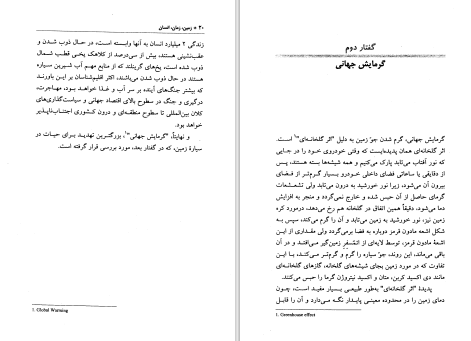 ۳۰ * زمین، زمان، انسان
زندگی ۲ میلیارد انسان به آنها وابسته است، در حال ذوب شدن و
عقب‌نشینی هستند، بیش از سی‌درصد از کلاهک یخی قطب شمال
ذوب شده است، یخ‌های گرینلند که از منابع مهم آب شیرین سیاره
هستند در حال ذوب شدن می‌باشند، اکثر اقلیم‌شناسان بر این باورند
که بیشتر جنگ‌های آینده بر سر آب و غذا خواهد بود، مهاجرت،
درگیری و جنگ در سطوح بالای اقتصاد جهانی و سیاست‌گذاری‌های
کلان بین‌المللی تا سطوح منطقه‌ای و درون کشوری اجتناب‌ناپذیر
خواهد بود.
و نهایتاً، "گرمایش جهانی"¹، بزرگترین تهدید برای حیات در
سیارهٔ زمین، که در گفتار بعد، مورد بررسی قرار گرفته است.
1. Global Warming
گفتار دوم
گرمایش جهانی
گرمایش جهانی، گرم شدن جوّ زمین به دلیل "اثر گلخانه‌ای"¹ است.
اثر گلخانه‌ای همان پدیده‌ایست که وقتی خودروی خود را در جایی
که نور آفتاب می‌تابد پارک می‌کنیم و همه شیشه‌ها بسته هستند، پس
از دقایقی یا ساعاتی فضای داخلی خودرو بسیار گرم‌تر از فضای
بیرون آن می‌شود، زیرا نور خورشید به درون می‌تابد ولی تشعشعات
گرمای حاصل از آن حبس شده و خارج نمی‌گردد و منجر به افزایش
گرما می‌شود، دقیقاً همین اتفاق در گلخانه هم رخ می‌دهد، درمورد کره
زمین نیز، نور خورشید به زمین می‌تابد و آن را گرم می‌کند، سپس به
شکل اشعه مادون قرمز دوباره به فضا برمی‌گردد ولی مقداری از این
اشعهٔ مادون قرمز، توسط لایه‌ای از اتمسفر زمین‌گیر می‌افتد و در آن
باقی می‌ماند، این روند، جوّ سیاره را گرم و گرم‌تر می‌کند، با این
تفاوت که در مورد زمین بجای شیشه‌های گلخانه، گازهای گلخانه‌ای
مانند دی اکسید کربن، متان و اکسید نیتروژن گرما را حبس می‌کنند.
پدیدهٔ "اثر گلخانه‌ای" به‌طور طبیعی بسیار مفید است، چون
دمای زمین را در محدوده معینی پایدار نگه می‌دارد و آن را قابل
1. Greenhouse effect